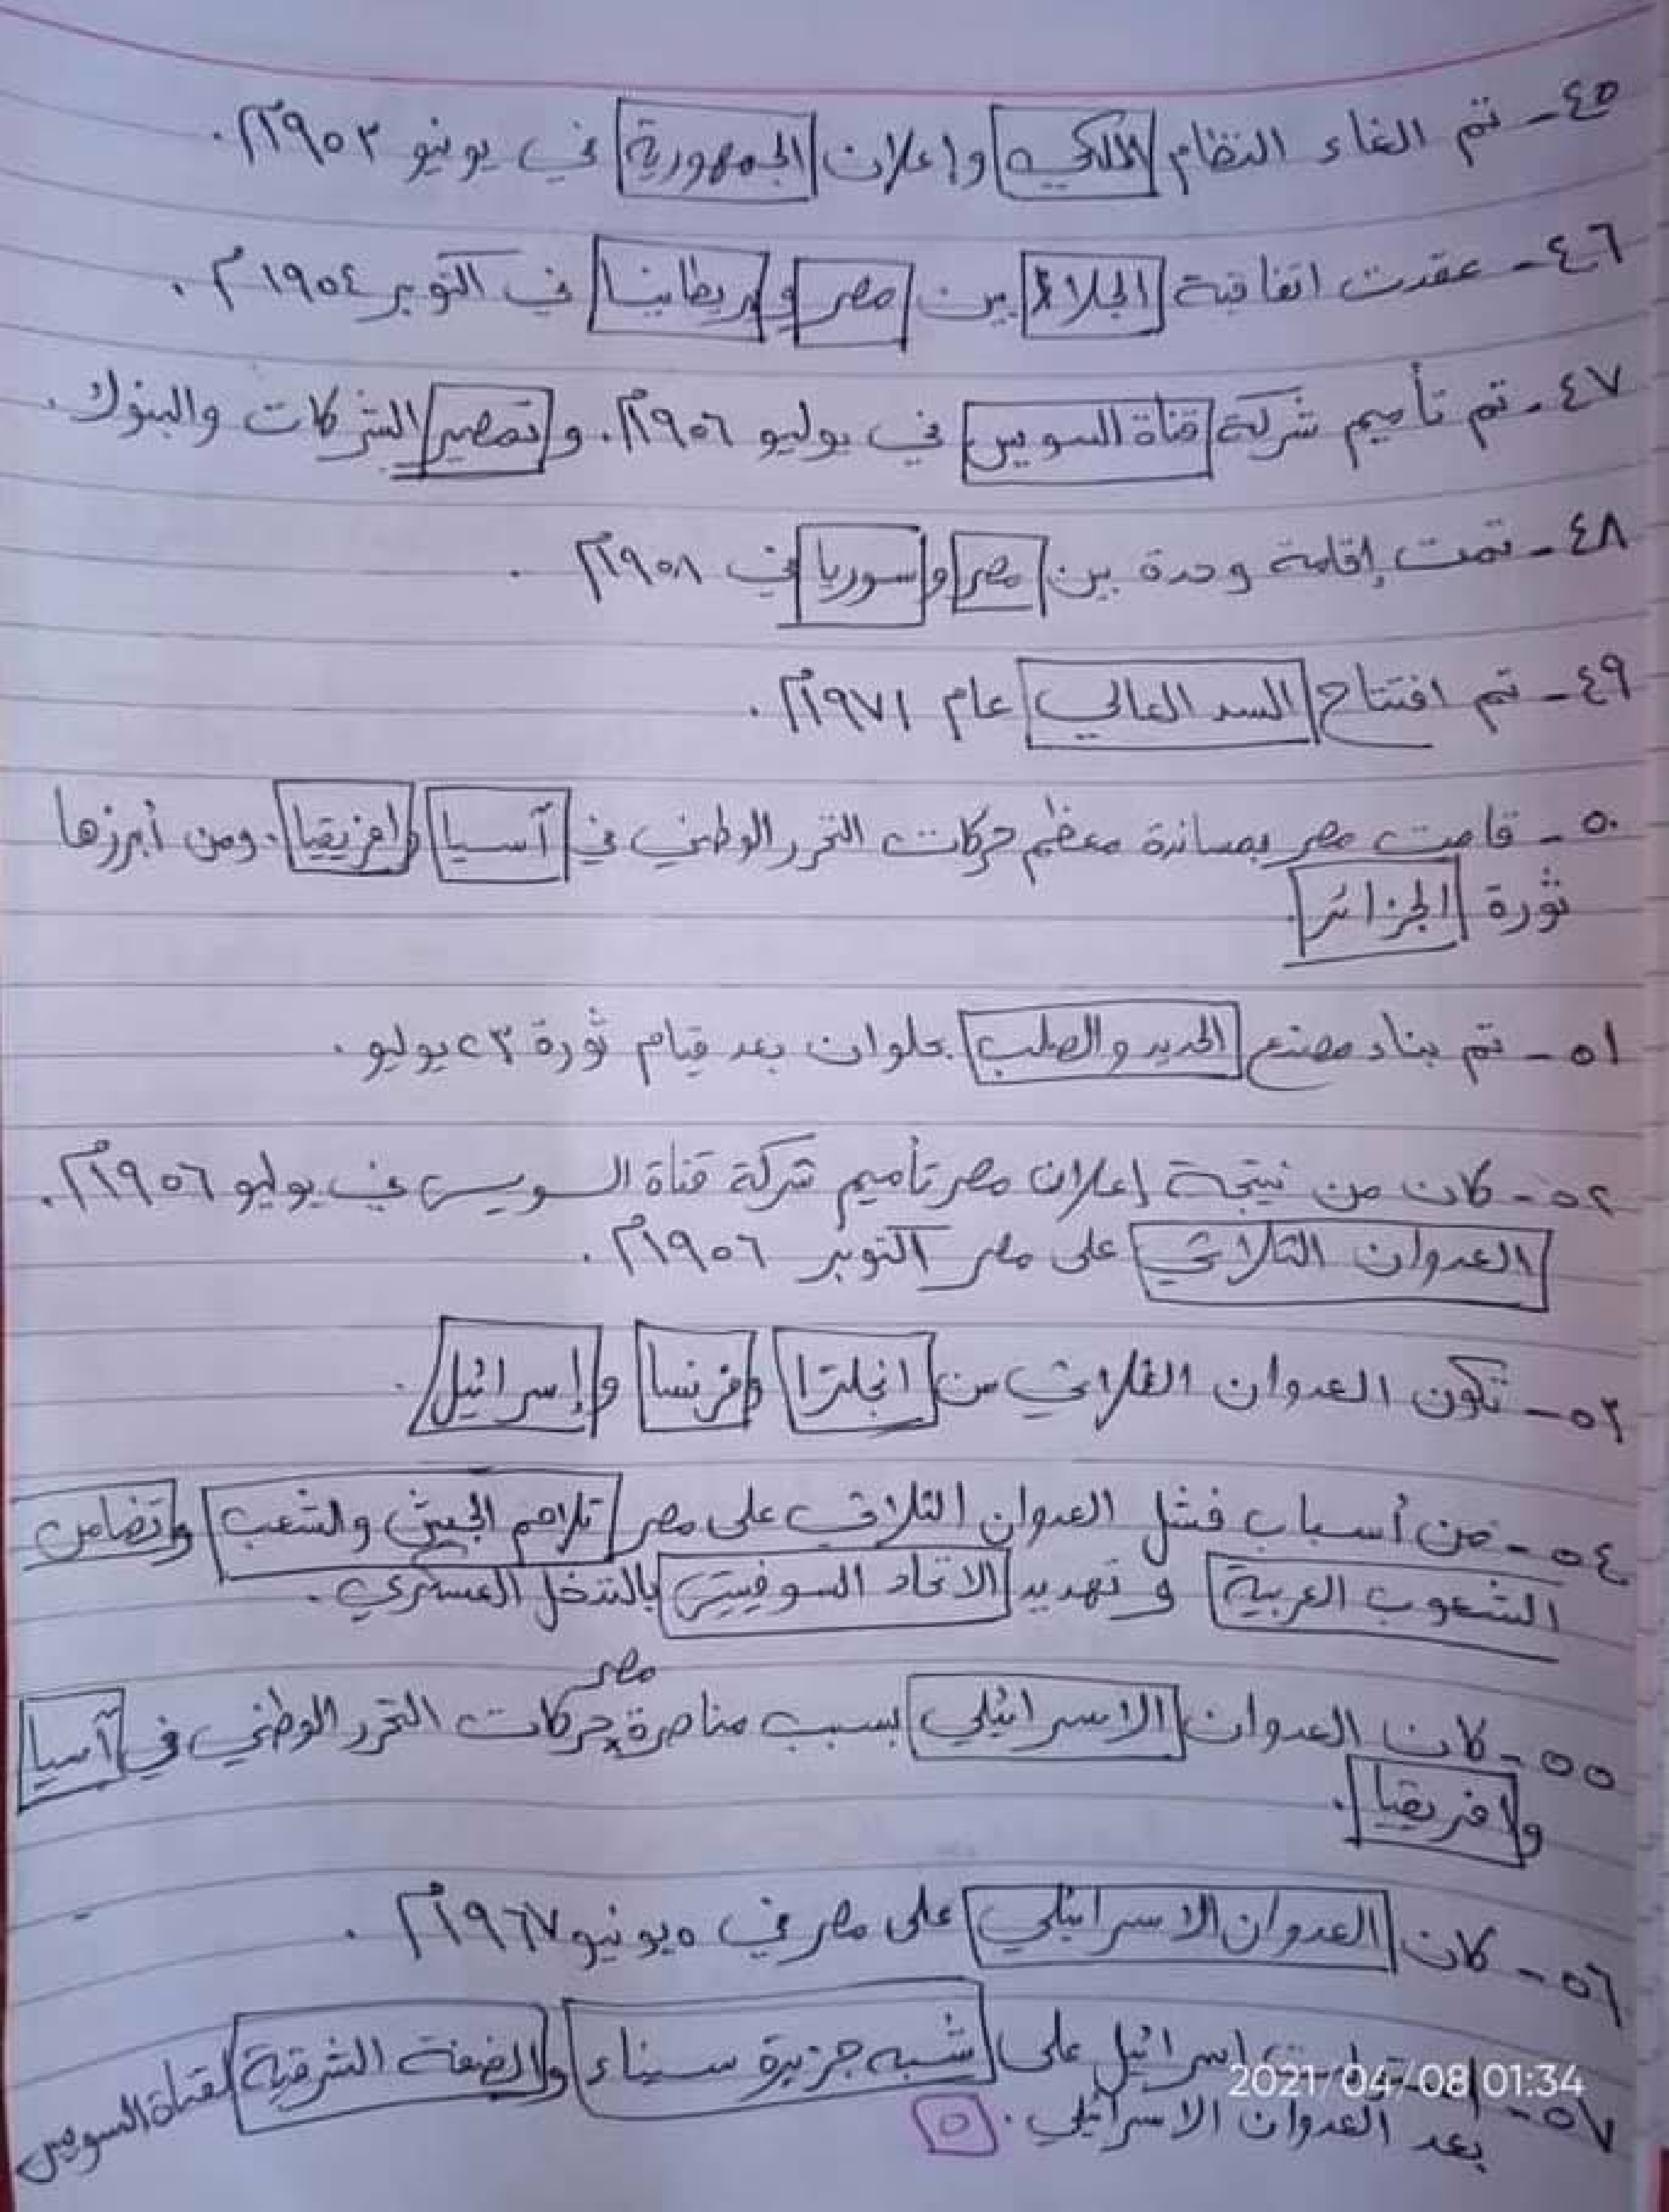 ٤٥- تم الغاء النظام الملكي وإعلان الجمهورية في يونيو ١٩٥٣م.
٤٦- عقدت اتفاقية الجلاء بين مصر وبريطانيا في اكتوبر ١٩٥٤م.
٤٧- تم تأميم شركة قناة السويس في يوليو ١٩٥٦م. وتمصير الشركات والبنوك.
٤٨- تمت إقامة وحدة بين مصر وسوريا في ١٩٥٨م.
٤٩- تم افتتاح السد العالي عام ١٩٧١م.
٥٠- قامت مصر بمساندة معظم حركات التحرر الوطني في آسيا وافريقيا. ومن أبرزها
ثورة الجزائر.
٥١- تم بناء مصنع الحديد والصلب بحلوان بعد قيام ثورة ٢٣ يوليو.
٥٢- كان من نتيجة إعلان مصر تأميم شركة قناة السويس في يوليو ١٩٥٦م.
العدوان الثلاثي على مصر اكتوبر ١٩٥٦م.
٥٣- تكون العدوان الثلاثي من انجلترا وفرنسا وإسرائيل.
٥٤- من أسباب فشل العدوان الثلاثي على مصر تلاحم الجيش والشعب وتضامن
الشعوب العربية و تهديد الاتحاد السوفيتي بالتدخل العسكري.
٥٥- كان العدوان الاسرائيلي بسبب مناصرة مصر حركات التحرر الوطني في آسيا
وافريقيا.
٥٦- كان العدوان الاسرائيلي على مصر في ٥ يونيو ١٩٦٧م.
٥٧- اسرائيل على شبه جزيرة سيناء والضفة الشرقية لقناة السويس
2021/04/08 01:34
بعد العدوان الاسرائيلي.
٥